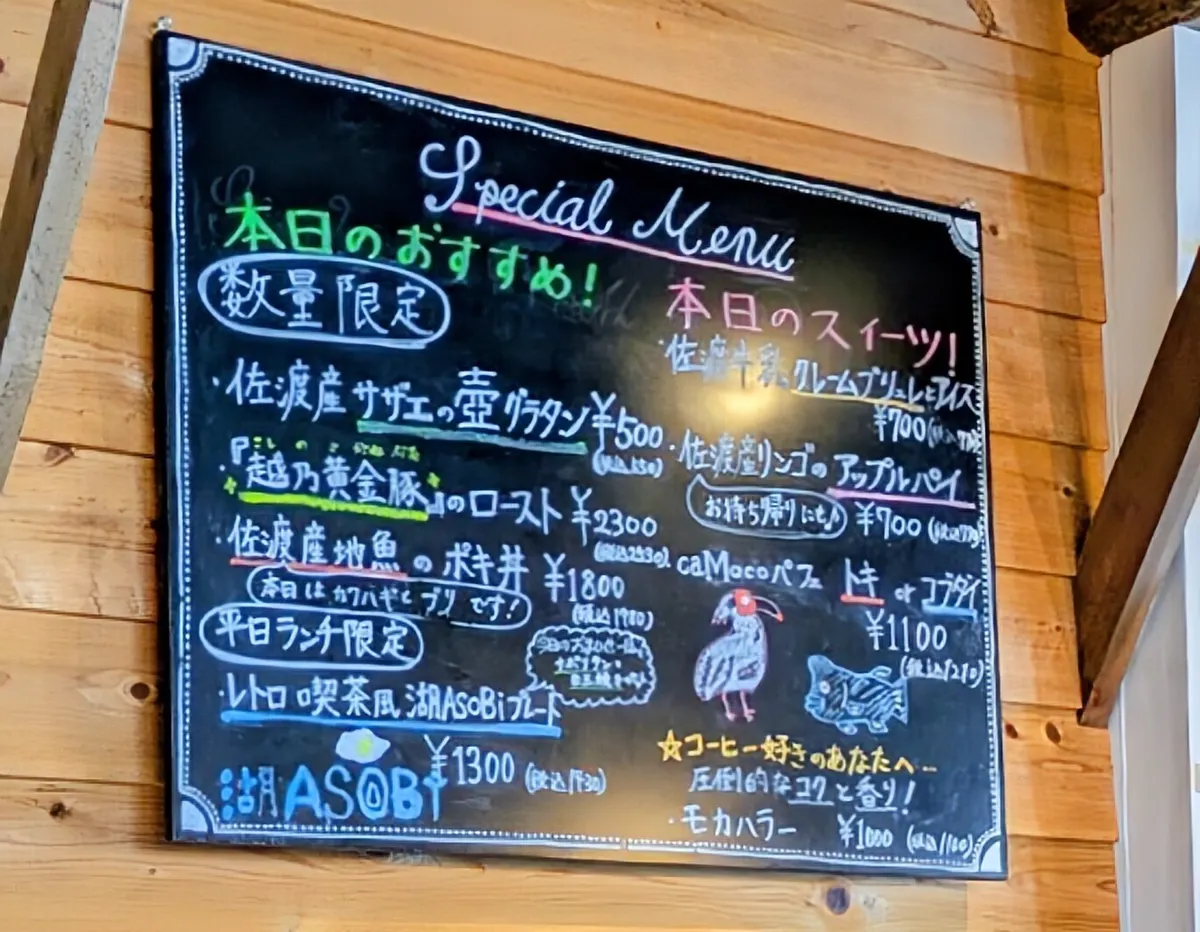 Special Menu
本日のおすすめ!
数量限定
・佐渡産サザエの壺グラタン ¥500
・『越乃黄金豚』のロースト ¥2300
・佐渡産地魚のポキ丼 ¥1800
(税込1980)
本日はカワハギとブリです!
平日ランチ限定
・レトロ喫茶風湖ASOBiプレート
¥1300 (税込1430)
湖ASOBi
本日のスイーツ!
・佐渡牛乳クレームブリュレとアイス
¥700
・佐渡産リンゴのアップルパイ
お持ち帰りにも♪ ¥700 (税込770)
caMocoパフェ トキ or コブダイ
¥1100
(税込1210)
☆コーヒー好きのあなたへ…
圧倒的なコクと香り!
・モカハラー ¥1000 (税込1100)